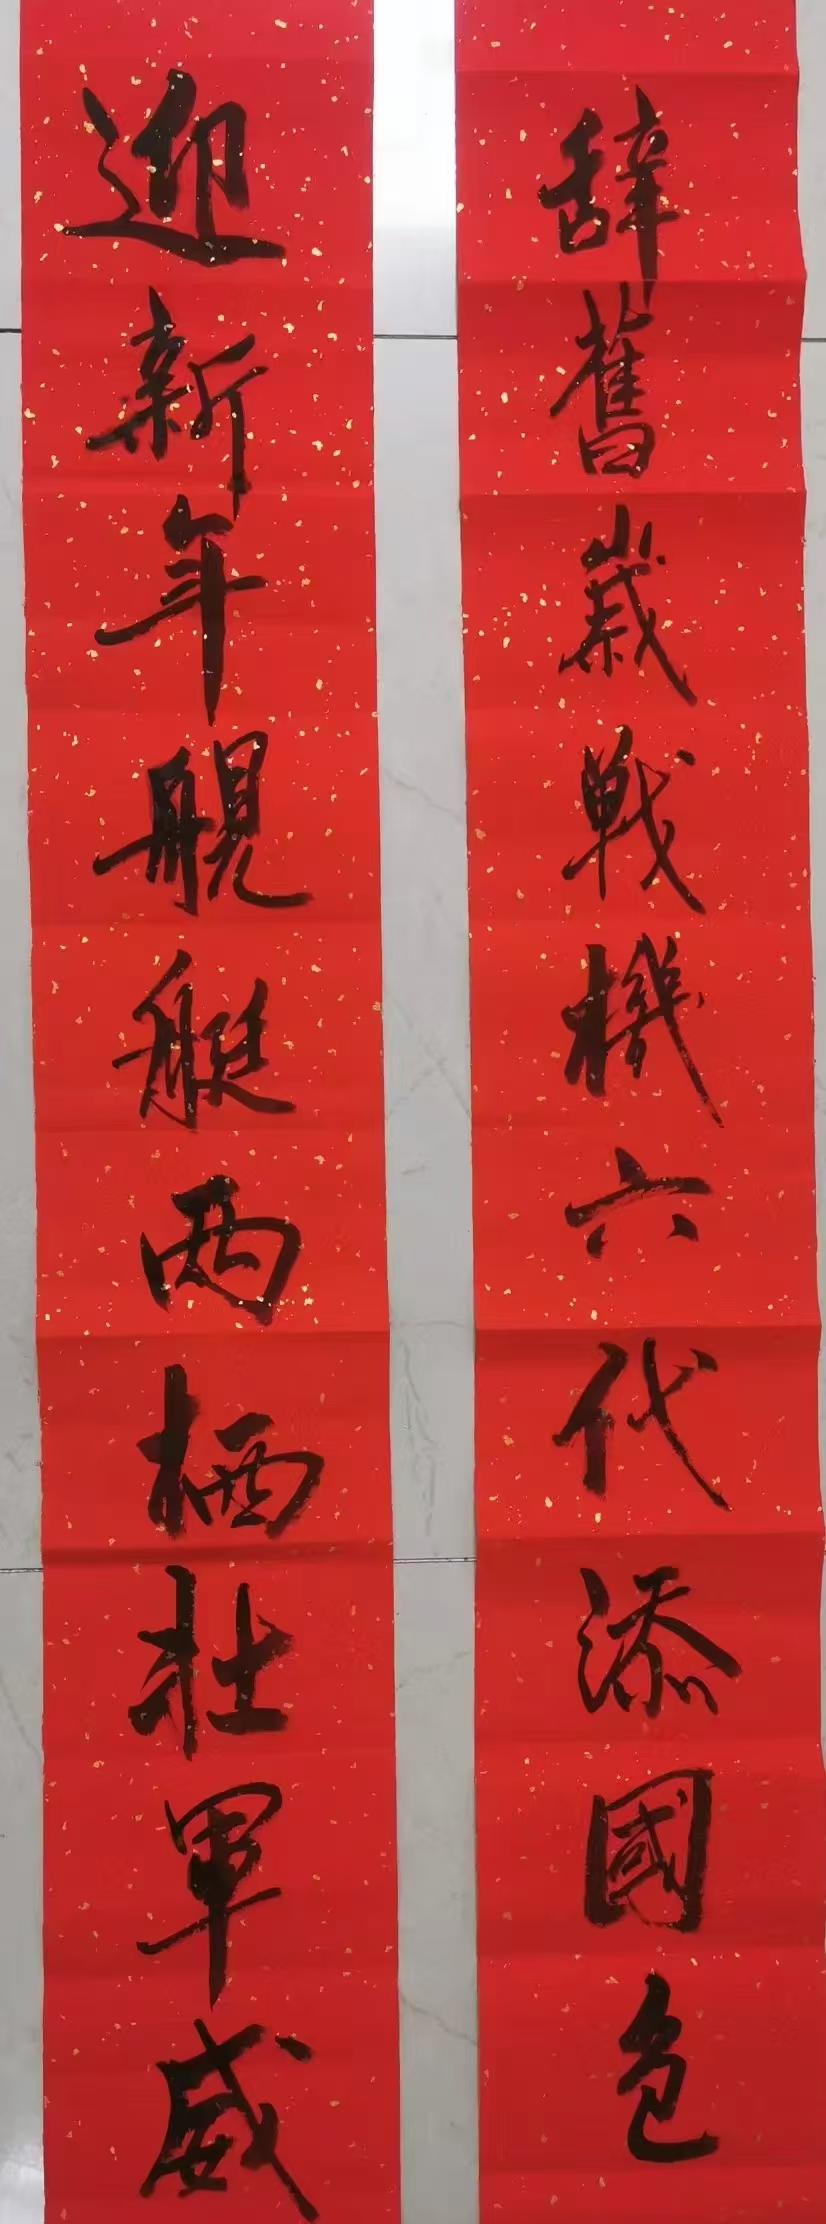 辞舊歲戰機六代添國色
迎新年舰艇两栖壯軍威